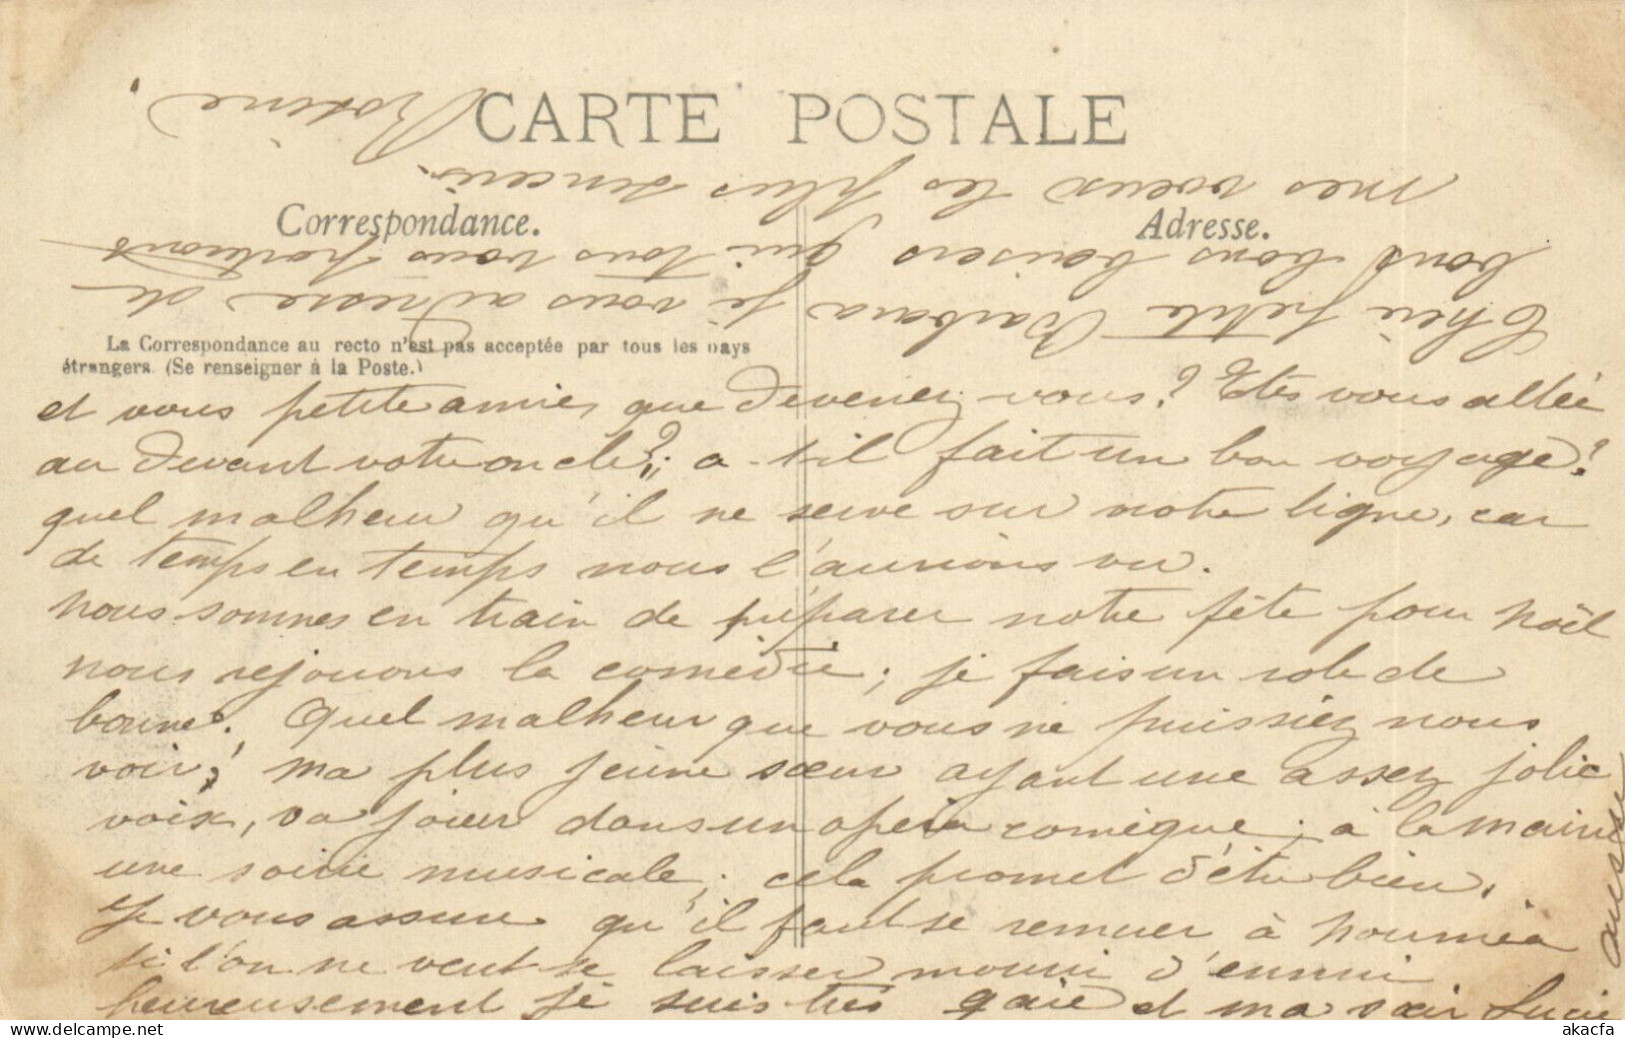 CARTE POSTALE
Correspondance.
Adresse.
La Correspondance au recto n'est pas acceptée par tous les pays
étrangers (Se renseigner à la Poste.)
et vous petite amie, que devenez-vous? Etes vous allée
au devant votre oncle?; a-t-il fait un bon voyage?
quel malheur qu'il ne serve sur notre ligne, car
de temps en temps nous l'aurions vu.
nous sommes en train de préparer notre fête pour Noël
nous rejouons la comédie; je fais un role de
bonne. Quel malheur que vous ne puissiez nous
voir! ma plus jeune sœur ayant une assez jolie
voix, va jouer dans un opéra comique; à la mairie
une soirée musicale; cela promet d'être bien.
Je vous assure qu'il faut se remuer à Nouméa
si l'on ne veut se laisser mourir d'ennui
heureusement je suis très gaie et ma sœur Lucie
aussi
Chère petite Barbara je vous adresse de
bons bons baisers qui tous vous portent
mes vœux les plus sincères.
Rosine.
akacfa
www.delcampe.net